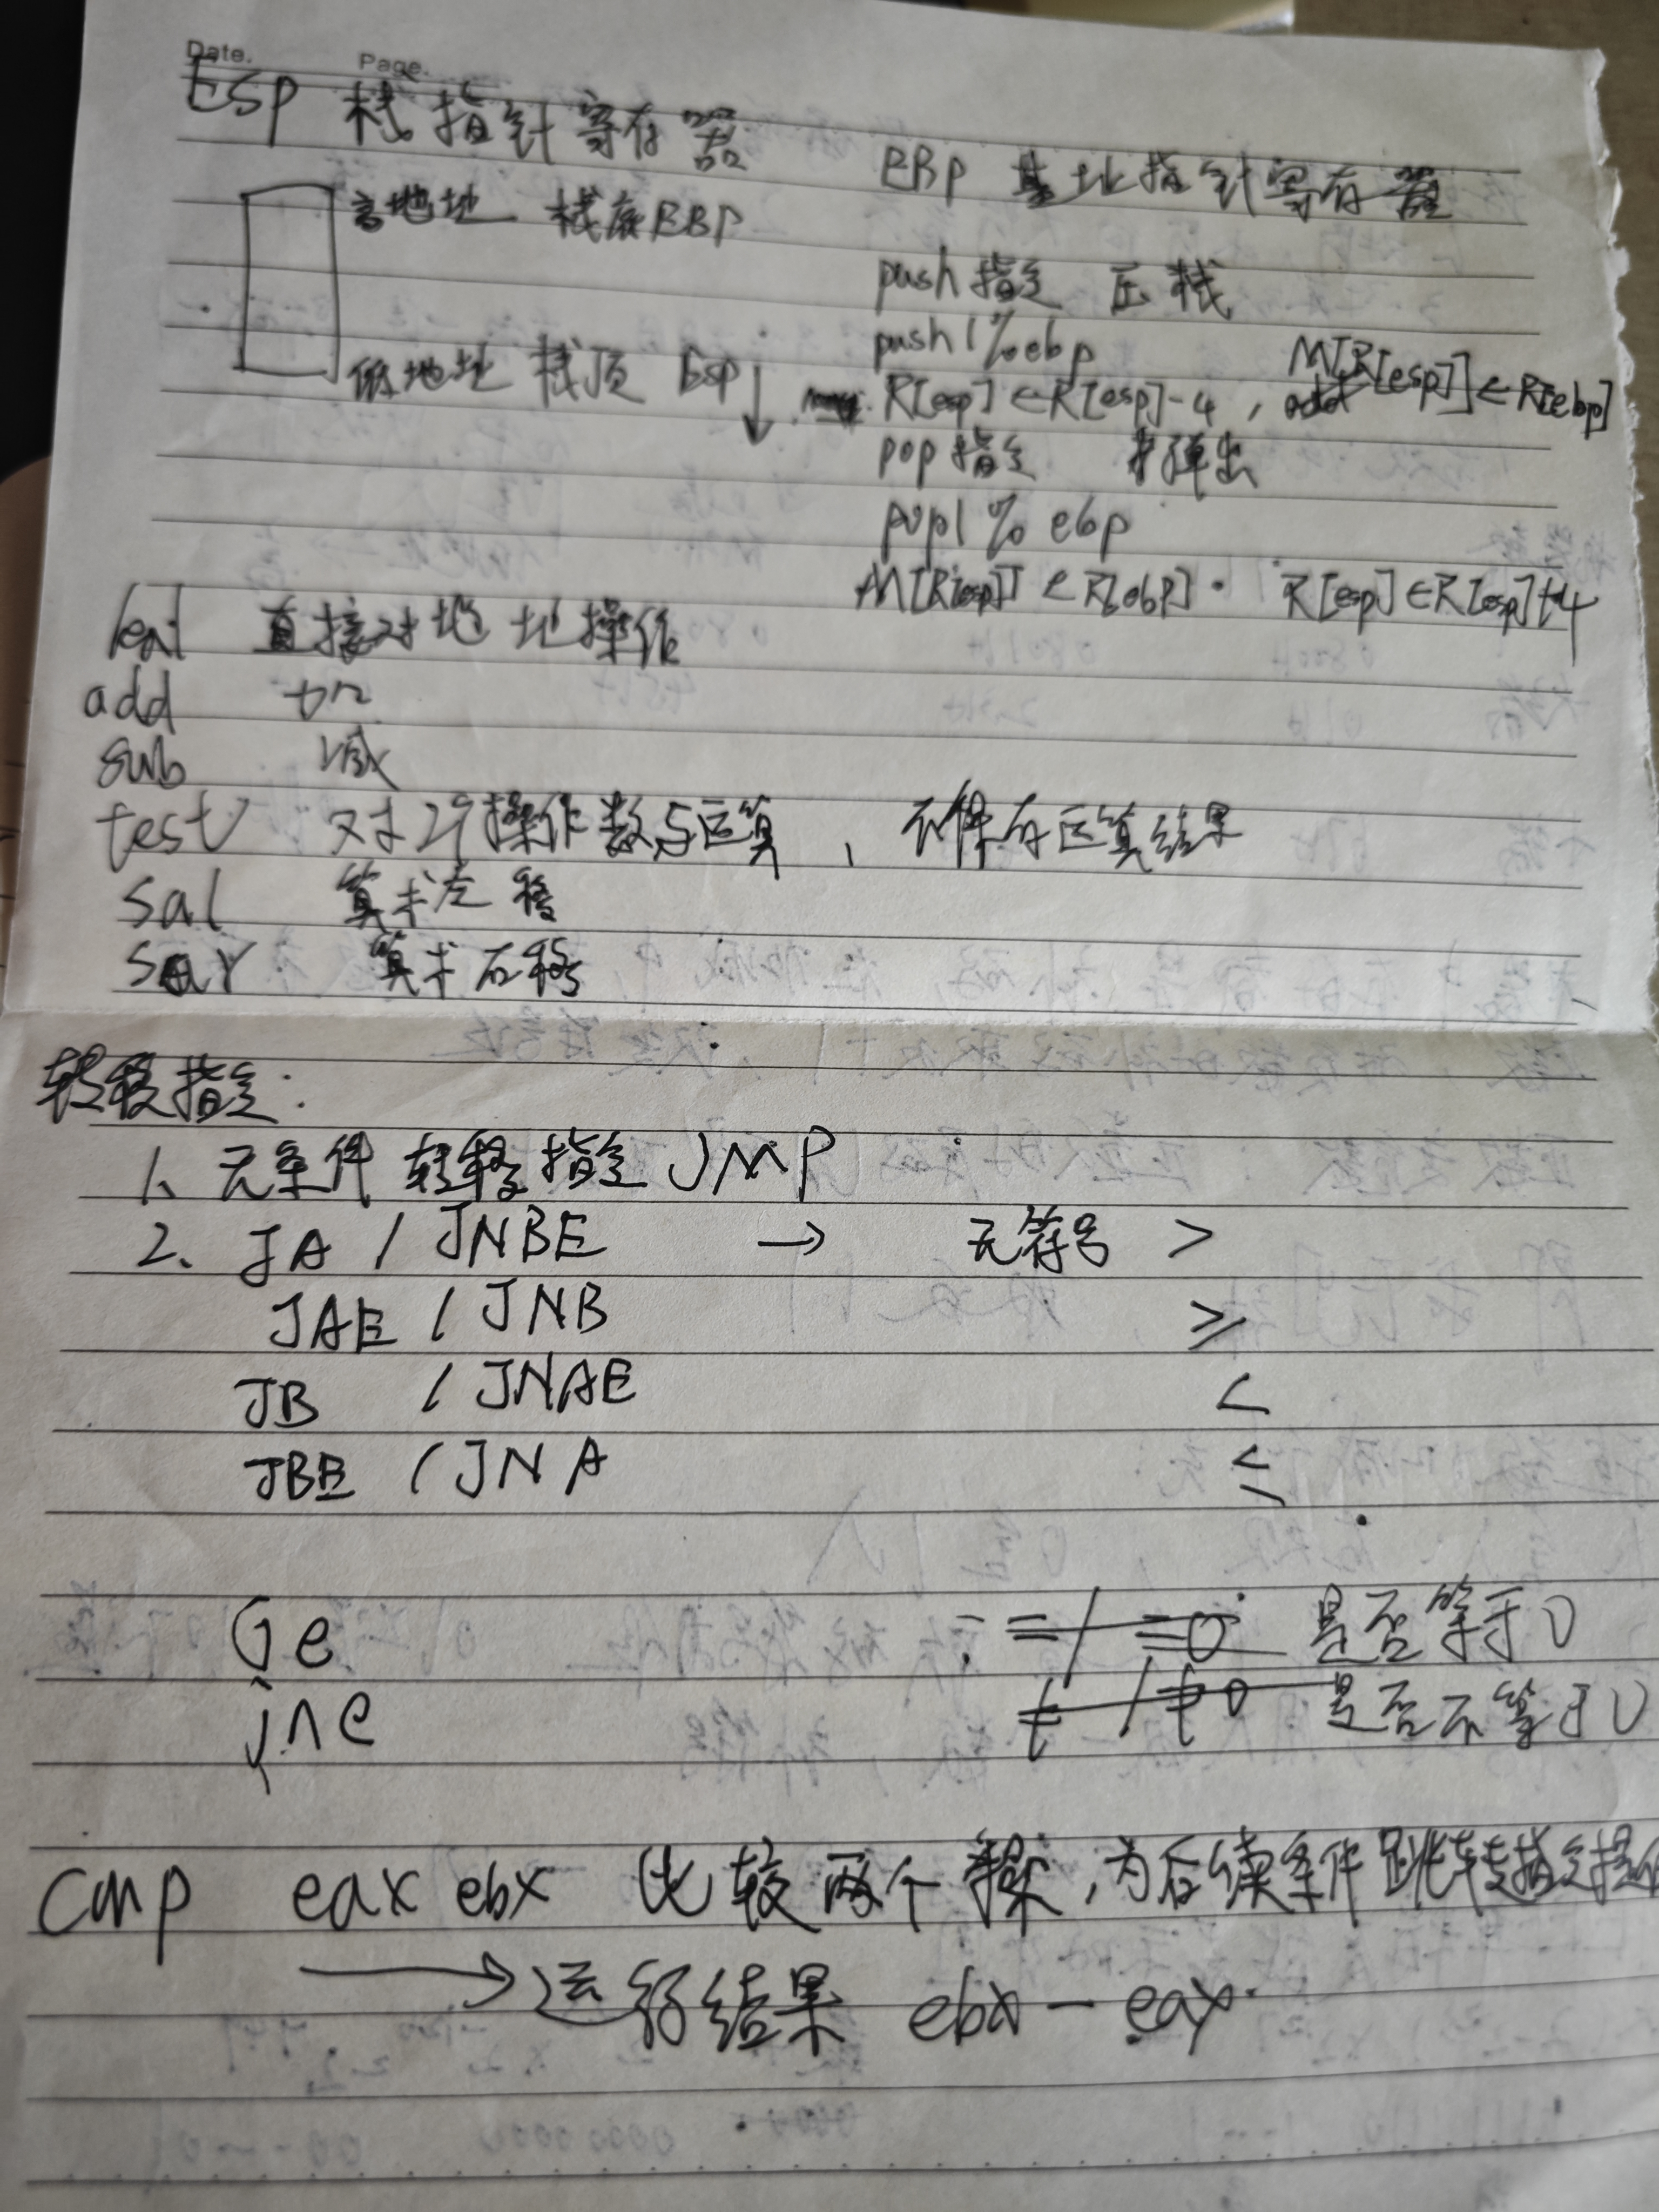 Date. Page.
ESP 栈指针寄存器
EBP 基址指针寄存器
高地址 栈底EBP
push 指令 压栈
pushl %ebp
低地址 栈顶 ESP↓
R[esp]←R[esp]-4, M[R[esp]]←R[ebp]
pop 指令 弹出
popl % ebp
M[R[esp]]←R[ebp]. R[esp]←R[esp]+4
leal 直接对地址操作
add 加
sub 减
test 对2个操作数与运算, 不保存运算结果
sal 算术左移
sar 算术右移
转移指令:
1、无条件转移指令 JMP
2、JA / JNBE → 无符号 >
JAE / JNB ≥
JB / JNAE <
JBE / JNA ≤
Je : =/ =0 是否等于0
jne ≠ / ≠0 是否不等于0
cmp eax ebx 比较两个操, 为后续条件跳转指令提供
→运行结果 ebx - eax